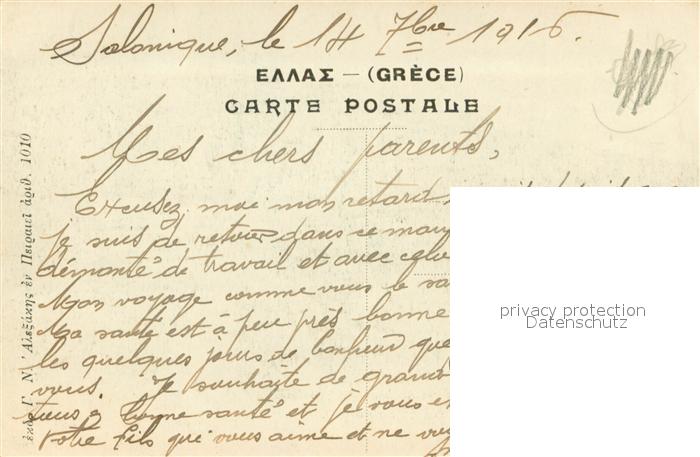 Salonique, le 14 7bre 1916.
ΕΛΛΑΣ — (GRÈCE)
CARTE POSTALE
Mes chers parents,
Excusez moi mon retard
Je suis de retour dans ce
démonté de travail et avec
Mon voyage comme vous le
Ma santé est à peu près bonne
les quelques jours de bonheur que
vous. Je souhaite de grand
tous à bonne santé et je vous
Votre fils qui vous aime et ne
privacy protection
Datenschutz
ἐκδ. Γ. Ν. Ἀλεξάκης ἐν Πειραιεῖ ἀριθ. 1010